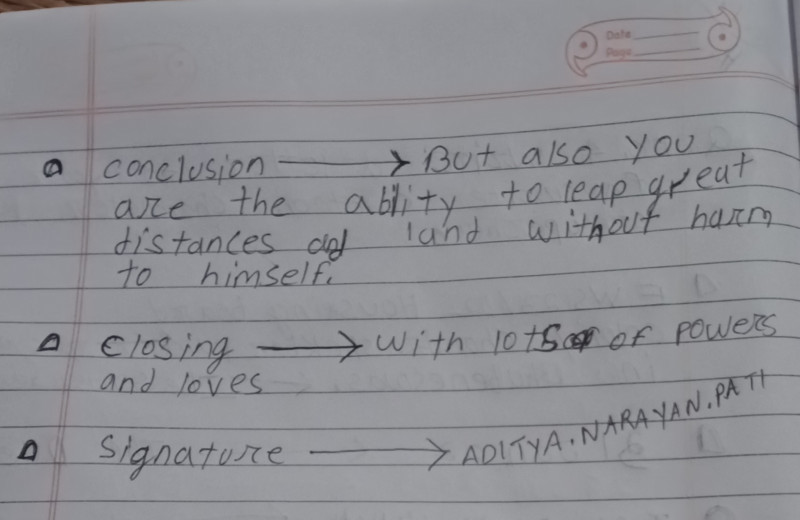 Date
Page
conclusion → But also you
are the ablity to leap great
distances and land without harm
to himself.
closing → with lots of powers
and loves
Signature → ADITYA.NARAYAN.PATI